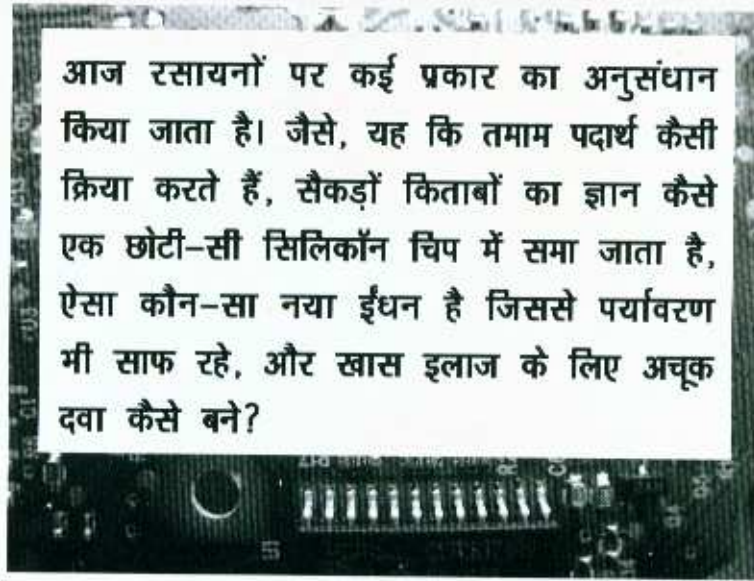 आज रसायनों पर कई प्रकार का अनुसंधान
किया जाता है। जैसे, यह कि तमाम पदार्थ कैसी
क्रिया करते हैं, सैकड़ों किताबों का ज्ञान कैसे
एक छोटी–सी सिलिकॉन चिप में समा जाता है,
ऐसा कौन–सा नया ईंधन है जिससे पर्यावरण
भी साफ रहे, और खास इलाज के लिए अचूक
दवा कैसे बने?